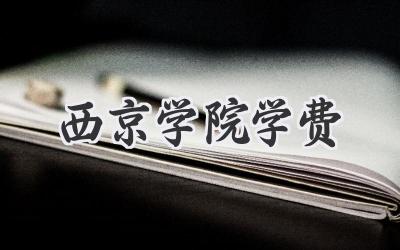 西京学院学费